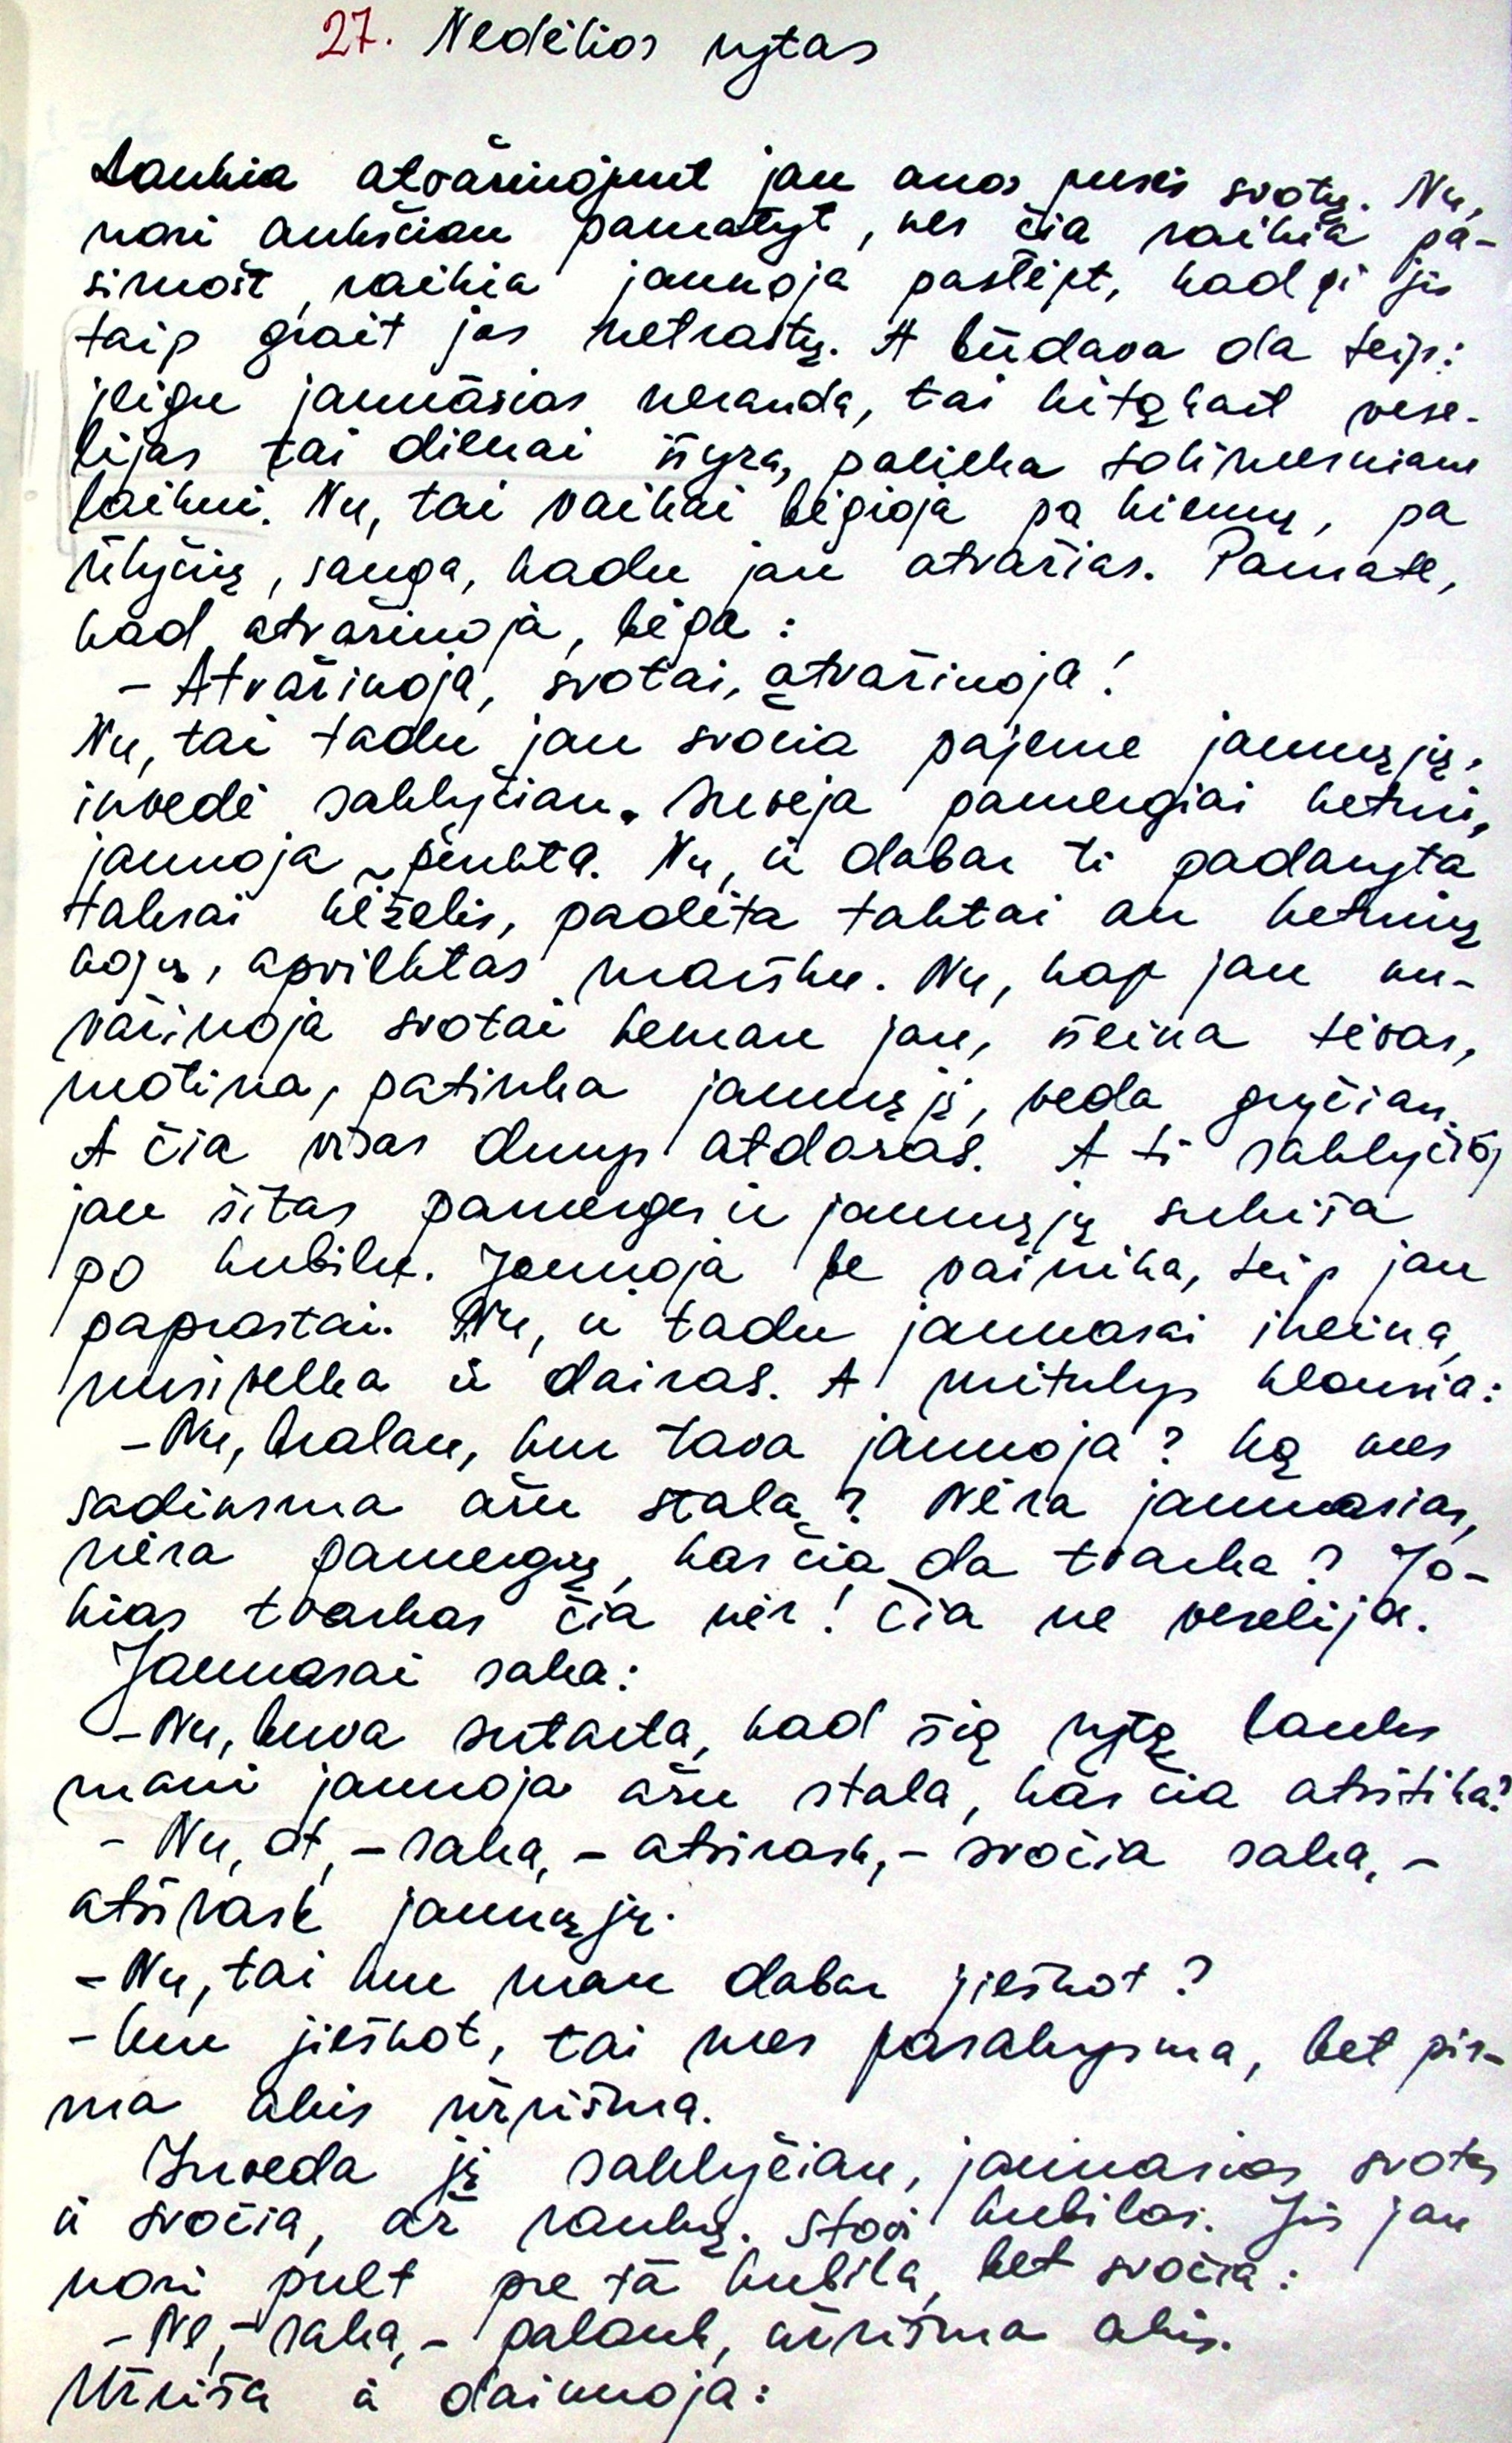 27. Nedėlios rytas
Laukia atvažiuojunt jau anos pusės svotų. Nu,
nori anksčiau pamatyt, nes čia raikia pa-
siruošt, raikia jaunoja paslėpt, kad gi jis
taip grait jos netrastų. A būdava da teip:
jeigu jaunāsias neranda, tai kitąkart vese-
lijas tai dienai īšyra, palieka tolimesniam
laikui. Nu, tai vaikai bėgioja pa kiemų, pa
ūlyčių, sauga, kadu jau atvažias. Pamate,
kad atvažiuoja, bėga:
– Atvažiuoja, svotai, atvažiuoja!
Nu, tai tadu jau svočia pajeme jaunųjų,
invedė saklyčian. Sueja pamergiai keturi,
jaunoja – penkta. Nu, ir dabar ti padaryta
taksai kėželis, padėta taktai an keturių
kojų, apvilktas maišku. Nu, kap jau nu-
važiuoja svotai keman jau, išeina tėvas,
motina, patinka jaunųjį, veda gryčian.
A čia visas durys atdaras. A ti saklyčioj
jau šitas pamerges ir jaunųjų sukiša
po kubilu. Jaunoja be vainika, teip jau
paprastai. Nu, ir tadu jaunasai ineina,
nusivelka ir dairas. A pritulys klausia:
– Nu, bralau, kur tava jaunoja? Ką mes
sadinsma ažu stala? Nėra jaunasias,
nėra pamergų, kas čia da tvarka? Jo-
kias tvarkas čia nėr! Čia ne veselija.
Jaunasai saka:
– Nu, buva sutarta, kad šią rytą lauks
mani jaunoja ažu stala, kas čia atsitika?
– Nu, ot, – saka, – atsirask, – svočia saka, –
atsirask jaunųjų.
– Nu, tai kur man dabar jieškot?
– Kur jieškot, tai mes pasakysma, bet pir-
ma akis užrišma.
Inveda jį saklyčian, jaunasias svotas
ir svočia, až rankų. Stovi kubilas. Jis jau
nori pult pre tā kubila, bet svočia:
– Ne, – saka, – palauk, užrišma akis.
Užriša ir dainuoja: